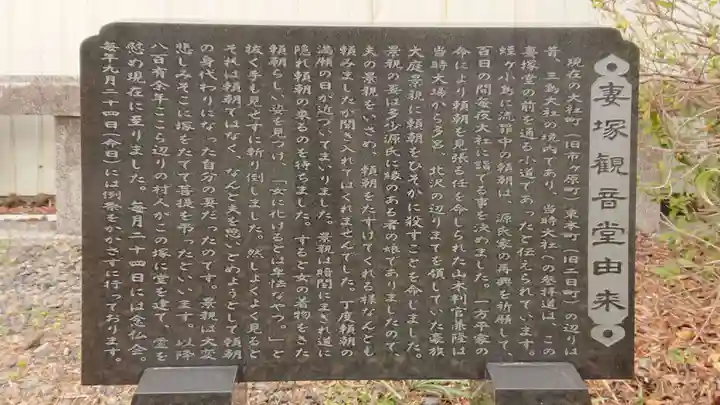 妻塚観音堂由来
現在の大社町（旧市ヶ原町）東本町（旧二日町）の辺りは
昔、三島大社の境内であり、当時大社への参拝道は、この
妻塚堂の前を通る小道であったと伝えられています。
蛭ヶ小島に流罪中の頼朝は、源氏家の再興を祈願して、
百日の間毎夜大社に詣でる事を決めました。一方平家の
命により頼朝を見張る任を命じられた山木判官兼隆は
当時大場から多呂、北沢の辺りまでを領していた豪族
大庭景親に頼朝をひそかに殺すことを命じました。
景親の妻は多少源氏に縁のある者の娘でありましたので、
夫の景親をいさめ、頼朝を久けてくれる様なんとし
頼みましたが聞き入れてはくれませんでした。丁度頼朝の
満願の日が近づいてまいりました。景親は暗闇にまぎれ道に
隠れ頼朝の来るのを待ちました。すると女の着物をきた
頼朝らしい姿を見つけ、「女に化けるとは卑怯なやつ。」と
抜く手も見せずに斬り倒しました。然しよくよく見ると
それは頼朝ではなく、なんと夫を思いとどめようとして頼朝
の身代わりになった自分の妻だったのです。景親は大変
悲しみそこに塚をたてて菩提を弔ったといいます。以降
八百有余年ここら辺りの村人がこの塚に堂を建て、霊を
慰め現在に至りました。毎月二十四日には念仏会。
毎年九月二十四日（命日）には例祭をかかさずに行っております。